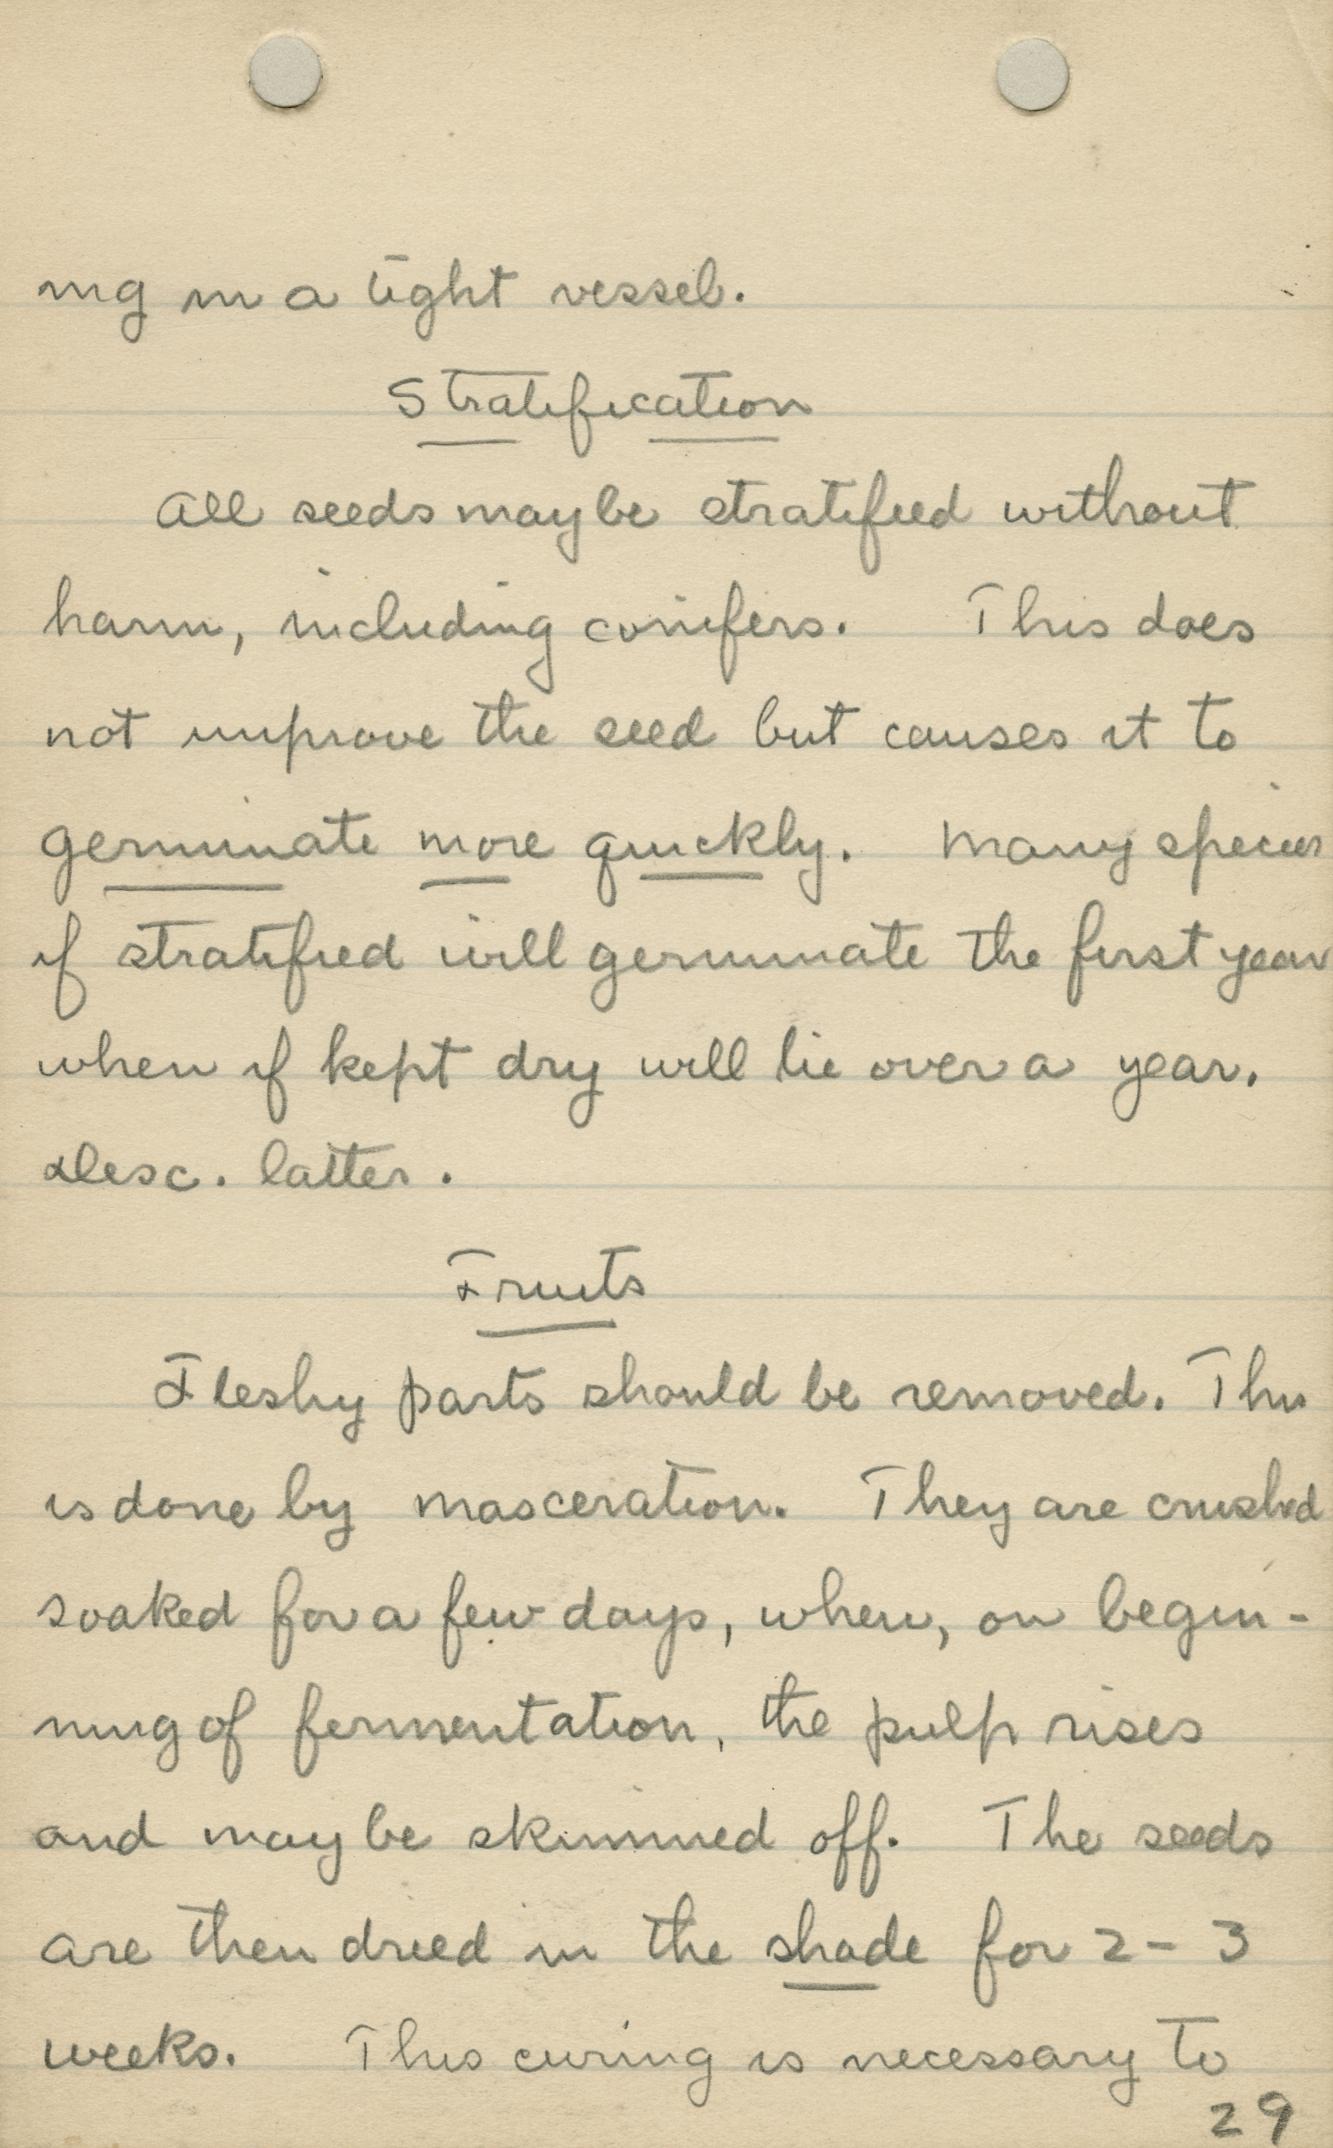 ing in a tight vessel.
Stratification
All seeds may be stratified without
harm, including conifers. This does
not improve the seed but causes it to
germinate more quickly. Many species
if stratified will germinate the first year
when if kept dry will lie over a year.
Desc. latter.
Fruits
Fleshy parts should be removed. This
is done by masceration. They are crushed
soaked for a few days, when, on begin-
ning of fermentation, the pulp rises
and may be skimmed off. The seeds
are then dried in the shade for 2-3
weeks. This curing is necessary to
29